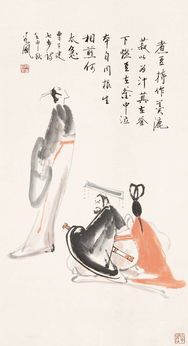 煮豆持作羹漉
菽以为汁萁在釜
下燃豆在釜中泣
本自同根生
相煎何
太急
曹子建
七步诗